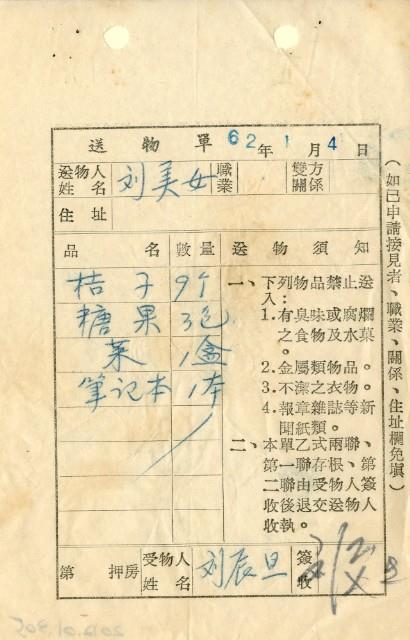 送物單 62年1月4日
送物人姓名 刘美女 職業 雙方關係
住址
品名 數量 送物須知
桔子 9个
糖果 3包
菜 1盒
筆記本 1本
一、下列物品禁止送入：
1. 有臭味或腐爛之食物及水菓。
2. 金屬類物品。
3. 不潔之衣物。
4. 報章雜誌等新聞紙類。
二、本單乙式兩聯、第一聯存根、第二聯由受物人簽收後退交送物人收執。
第 押房 受物人姓名 刘辰旦 簽收
（如已申請接見者、職業、關係、住址欄免填）